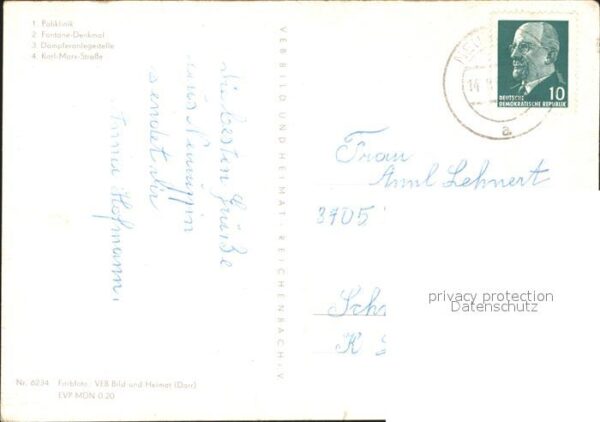 1. Poliklinik
2. Fontane-Denkmal
3. Dampferanlegestelle
4. Karl-Marx-Straße
die besten Grüße
aus Neuruppin
sendet dir
Hofmann.
Nr. 6234 Farbfoto: VEB Bild und Heimat (Darr)
EVP MDN 0.20
VEB BILD UND HEIMAT · REICHENBACH i. V.
DEUTSCHE
DEMOKRATISCHE REPUBLIK
10
a
Frau
Lehnert
3705
privacy protection
Datenschutz